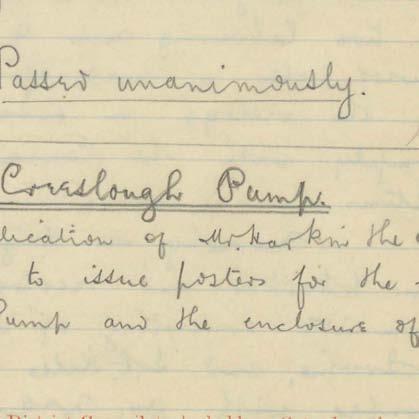 Passed unanimously.
Creeslough Pump.
lication of Mr. Harkin the
to issue posters for the
Pump and the enclosure of